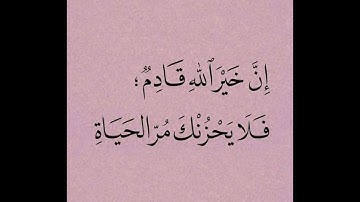 إِنَّ خَيْرَ ٱللهِ قَادِمٌ ؛
فَلَا يَحْزُنْكَ مُرّ الحَيَاةِ